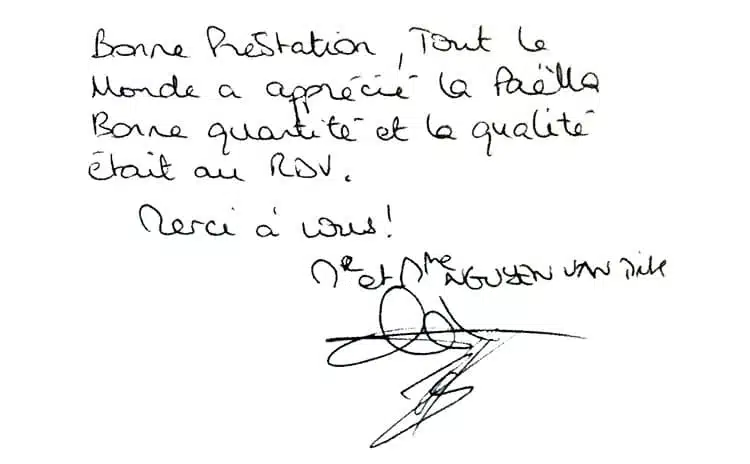 Bonne Prestation, Tout le
Monde a apprécié la Paëlla
Bonne quantité et la qualité
était au RDV.
Merci à vous!
Mr et Mme NGUYEN VAN